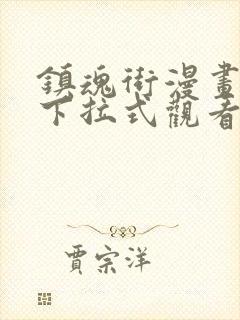 鎮魂街漫畫
下拉式觀看
賈宗洋